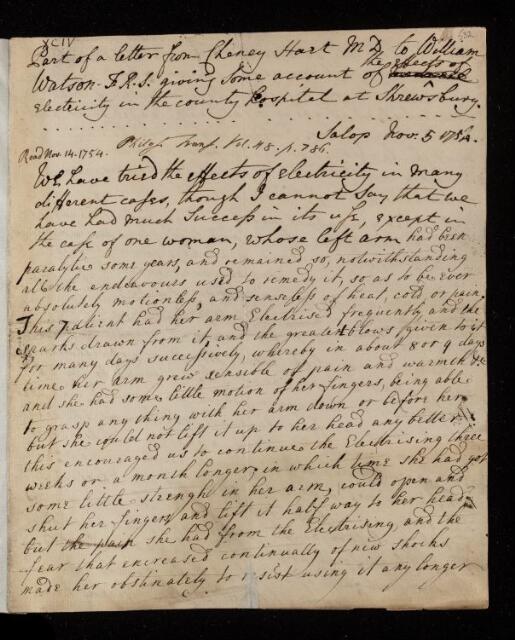 XCIV
Part of a letter from Cheney Hart M.D. to William
Watson F.R.S. giving some account of the effects of
electricity in the county hospital at Shrewsbury.
Salop Nov. 5 1754.
Read Nov. 14. 1754. Philos. Trans. Vol. 48. p. 786.
We have tried the effects of electricity in many
different cases, though I cannot say that we
have had much success in its use, except in
the case of one woman, whose left arm had been
paralytic some years, and remained so, notwithstanding
all the endeavours used to remedy it, so as to be ever
absolutely motionless, and senseless of heat, cold or pain.
This patient had her arm Electrised frequently and the
sparks drawn from it, and the greatest blows given to it
for many days successively, whereby in about 8 or 9 days
time her arm grew sensible of pain and warmth &c
and she had some little motion of her fingers, being able
to grasp any thing with her arm down or before her
but she could not lift it up to her head any better.
this encouraged us to continue the Electrising three
weeks or a month longer, in which time she had got
some little strengh in her arm, could open and
shut her fingers and lift it half way to her head
but the pain she had from the Electrising and the
fear that encreased continually of new shocks
made her obstinately to resist using it any longer